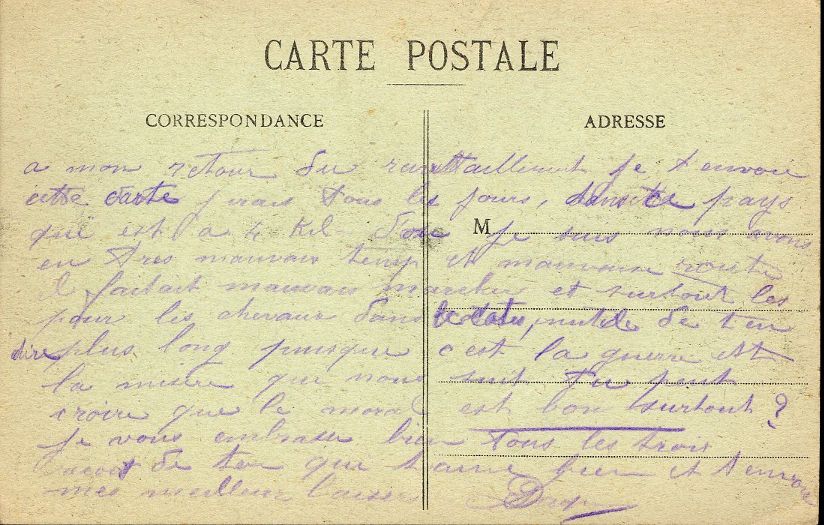 CARTE POSTALE
CORRESPONDANCE
ADRESSE
M
a mon retour du je t envoie
cette carte j irais tous les jours, dans ce pays
que est a 4 Kil dou je suis nous avons
eu tres mauvais temp et mauvaise route
il faisait mauvais marcher et surtout les
pour les chevaux dans de t en
dire plus long puisque c est la guerre et
la misère que nous suit tu peut
croire que le moral est bon surtout ?
je vous embrasse bien tous les trois
de ton que t aime bien et t envoie
mes meilleur baiser